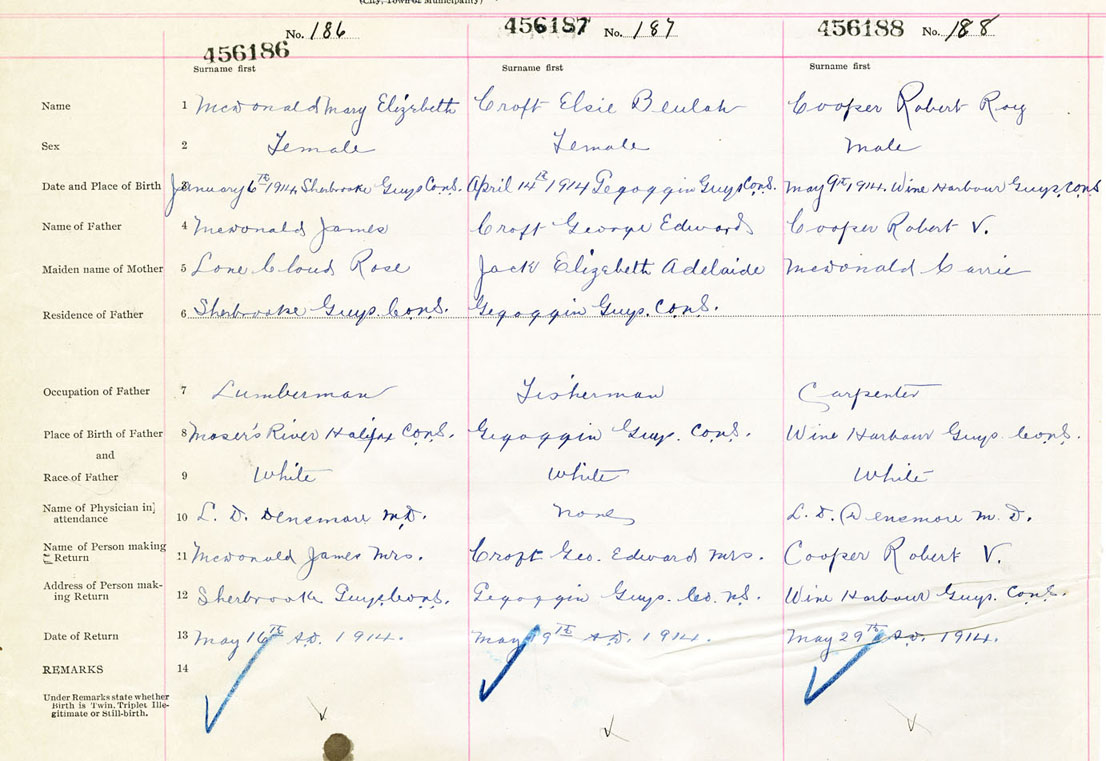 (City, Town or Municipality)
No. 186 No. 187 No. 188
456186 456187 456188
Surname first Surname first Surname first
Name 1 McDonald Mary Elizabeth Croft Elsie Beulah Cooper Robert Roy
Sex 2 Female Female Male
Date and Place of Birth 3 January 6th 1914, Sherbrooke Guys Co N.S. April 14th 1914 Gegoggin Guys Co N.S. May 9th 1914. Wine Harbour Guys Co N.S
Name of Father 4 McDonald James Croft George Edward Cooper Robert V.
Maiden name of Mother 5 Lone Cloud Rose Jack Elizabeth Adelaide McDonald Carrie
Residence of Father 6 Sherbrooke Guys. Co N.S. Gegoggin Guys. Co N.S.
Occupation of Father 7 Lumberman Fisherman Carpenter
Place of Birth of Father 8 Moser's River Halifax Co N.S. Gegoggin Guys. Co N.S. Wine Harbour Guys. Co N.S.
and
Race of Father 9 White White White
Name of Physician in attendance 10 L. D. Densmore M.D. None L. D. Densmore M. D.
Name of Person making Return 11 McDonald James Mrs. Croft Geo. Edward Mrs. Cooper Robert V.
Address of Person making Return 12 Sherbrooke Guys Co N.S. Gegoggin Guys. Co. N.S. Wine Harbour Guys. Co N.S.
Date of Return 13 May 16th A.D. 1914. May 19th A.D. 1914. May 29th A.D. 1914.
REMARKS 14
Under Remarks state whether
Birth is Twin, Triplet Ille-
gitimate or Still-birth.